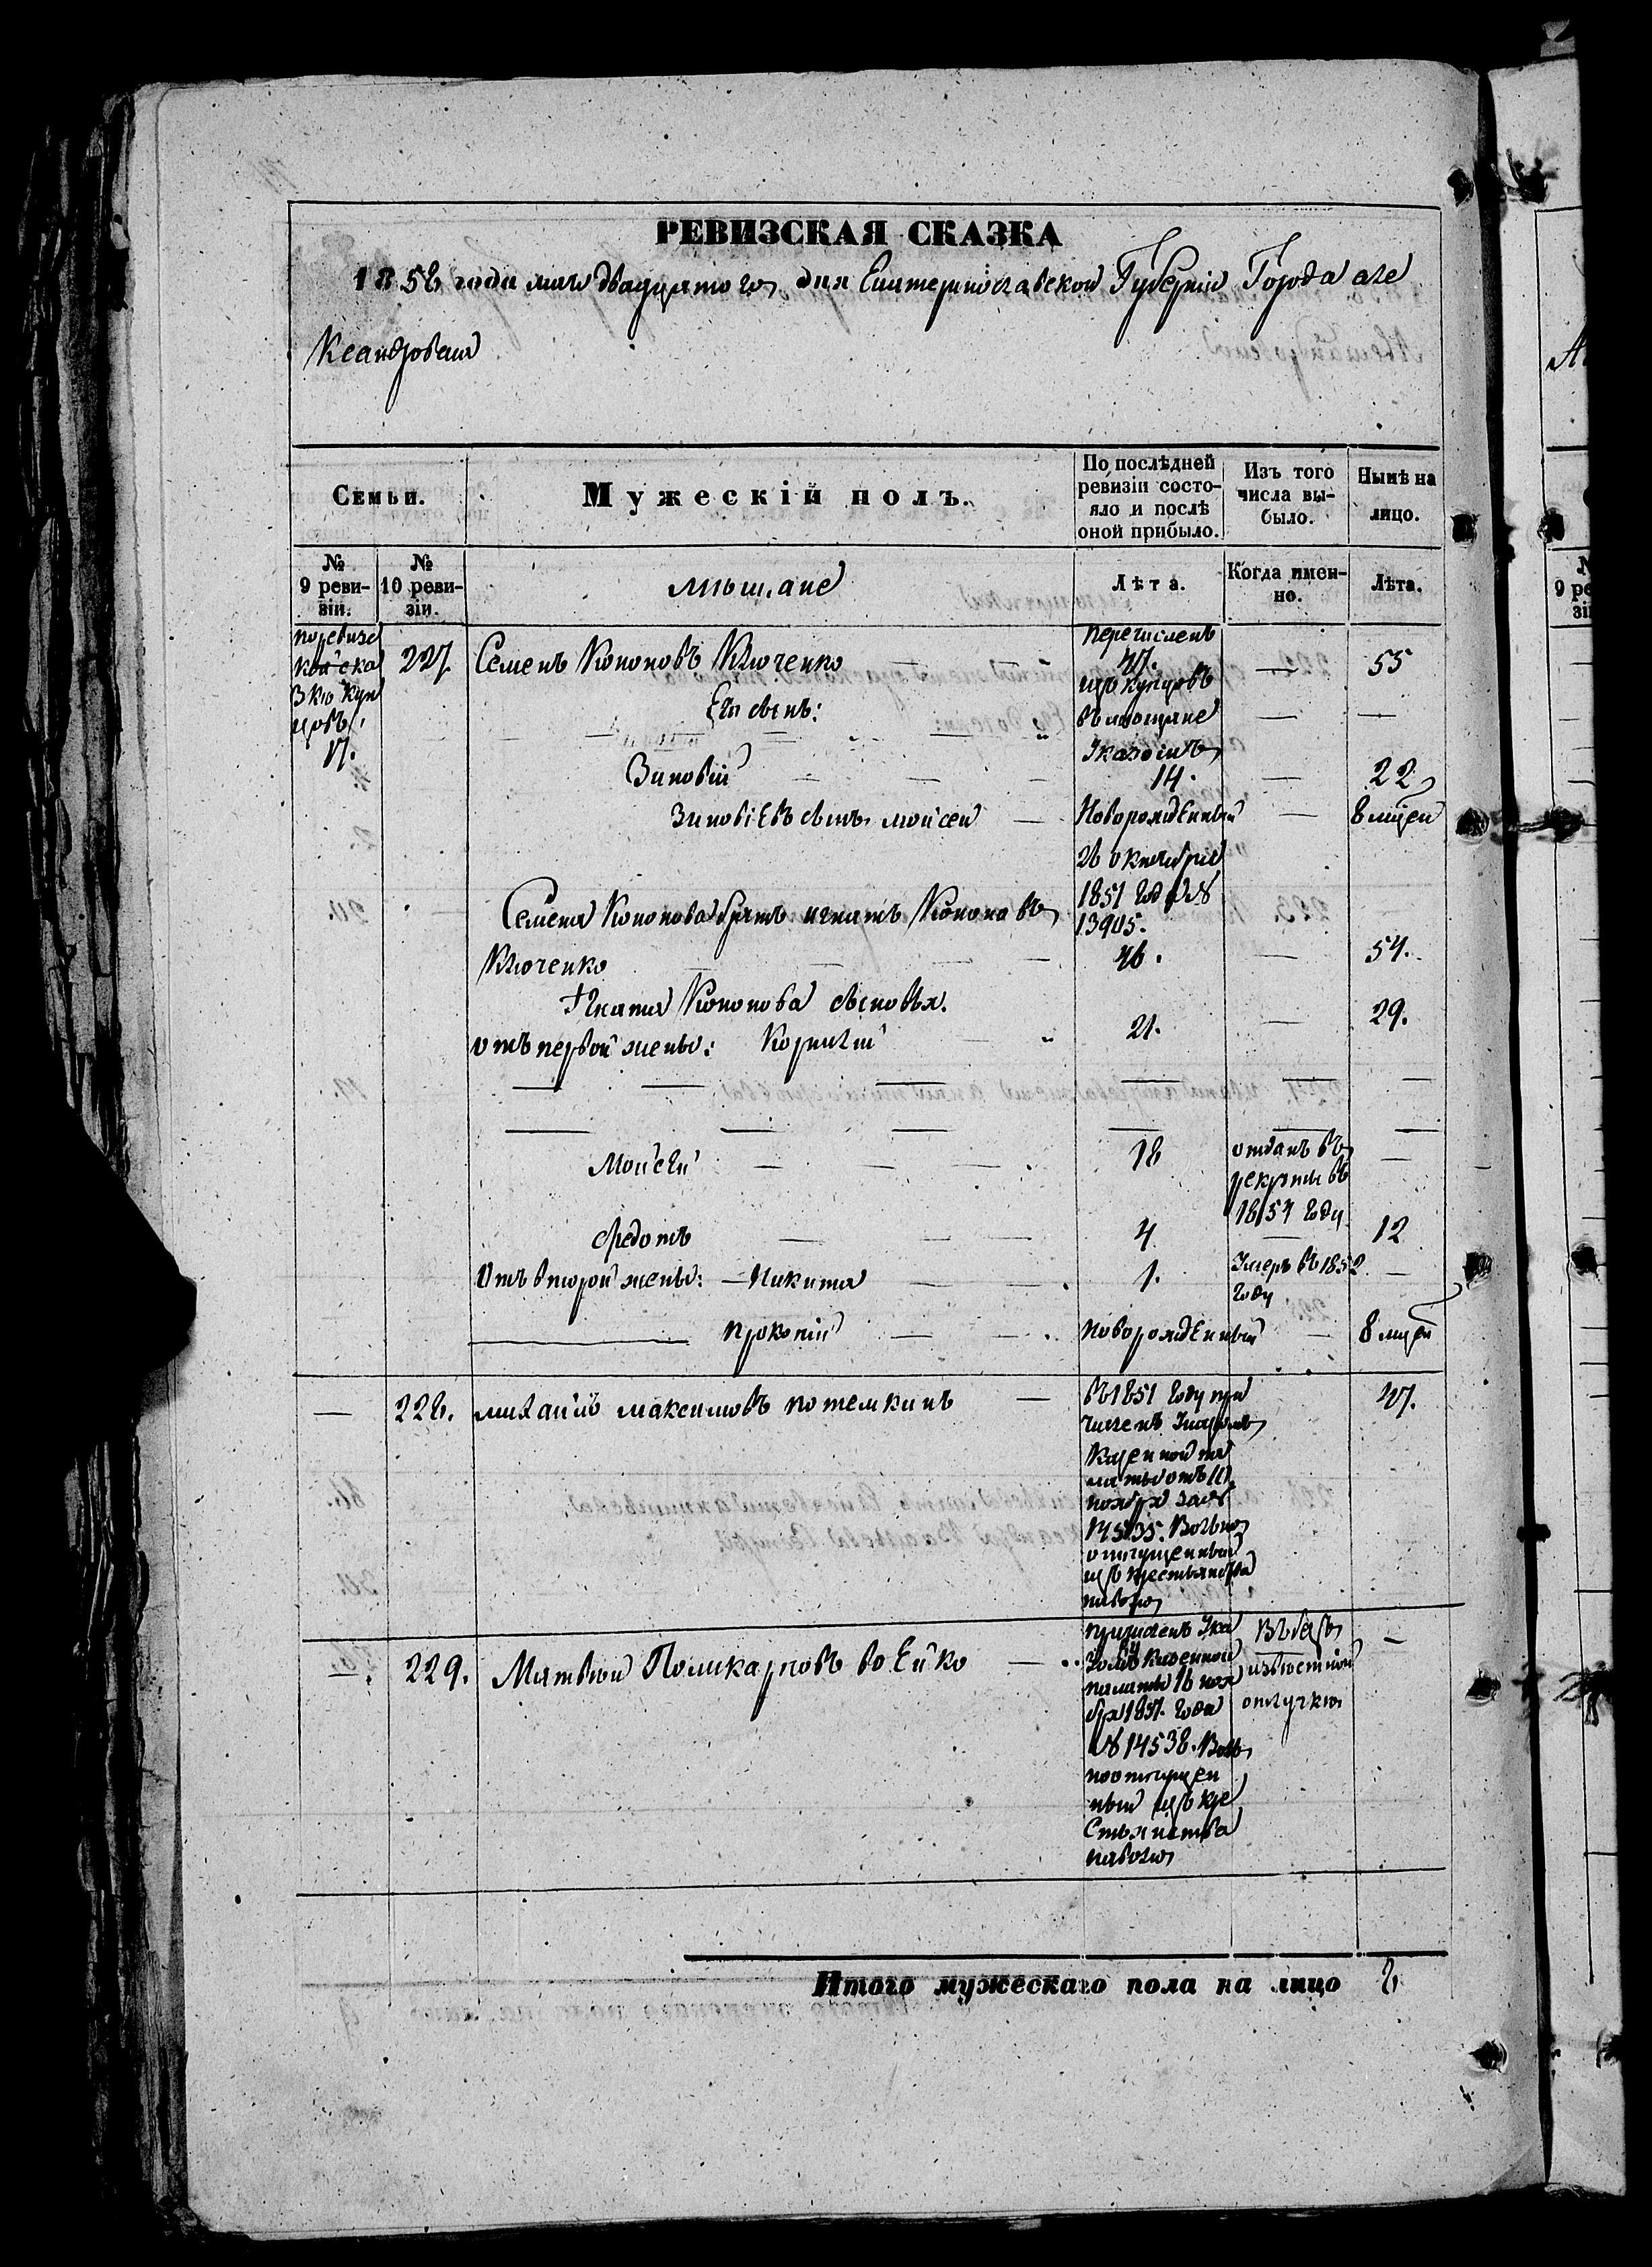 РЕВИЗСКАЯ СКАЗКА
1858 года мая двадцатого дня Екатеринославской Губерніи Города Але
ксандровска
Семьи.
Мужескій полъ.
По послѣдней
ревизіи состо-
яло и послѣ
оной прибыло.
Изъ того
числа вы-
было.
Нынѣ на
лицо.
№
9 реви-
зіи.
№
10 реви-
зіи.
мѣщане
Лѣта.
Когда имен-
но.
Лѣта.
по ревизс
кой ска
зкѣ куп
цовъ
17.
227. Семенъ Кононовъ Ключенко
перечисленъ
47.
изъ купцовъ
въ мещане
Указомъ
— 55
Его сынъ:
Зиновій 14. — 22
Зиновіевъ сынъ Мойсей — Новорожденный — 8 мцей
26 октября
1851 года №
13905.
Семена Кононова братъ Игнатъ Кононовъ
Ключенко 46. — 54.
Игната Кононова сыновья.
отъ первой жены: Корнѣй 21. — 29.
Мойсей 18 отданъ въ
рекруты въ
1854 году —
Федотъ 4 — 12
Отъ второй жены: — Никита 1. Умеръ въ 1852
году —
Прокопій — новорожденный — 8 мцей
— 228. Михаилъ Максимовъ Потемкинъ —
въ 1851 году при
численъ Указомъ
Казенной па
латы отъ
ноября за №
14535. Вольно
отпущенный
изъ крестьянства
на волю
47.
229. Матвѣй Поликарповъ Воейко
причисленъ Ука
зомъ Казенной
палаты 16 ноя
бря 1851 года
№ 14538. Воль
ноотпущен
ный изъ кре
стьянства
на волю
въ безъ
извѣстной
отлучкѣ
—
Итого мужескаго пола на лицо 8